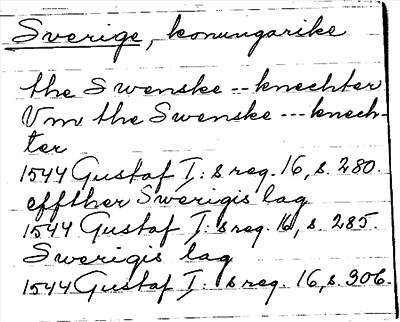 Sverige, konungarike
the Swenske -- knechter
Vm the Swenske --- knech-
ter
1544 Gustaf I: s reg. 16, s. 280.
effther Swerigis lag
1544 Gustaf I: s reg. 16, s. 285.
Swerigis lag
1544 Gustaf I: s reg. 16, s. 306.